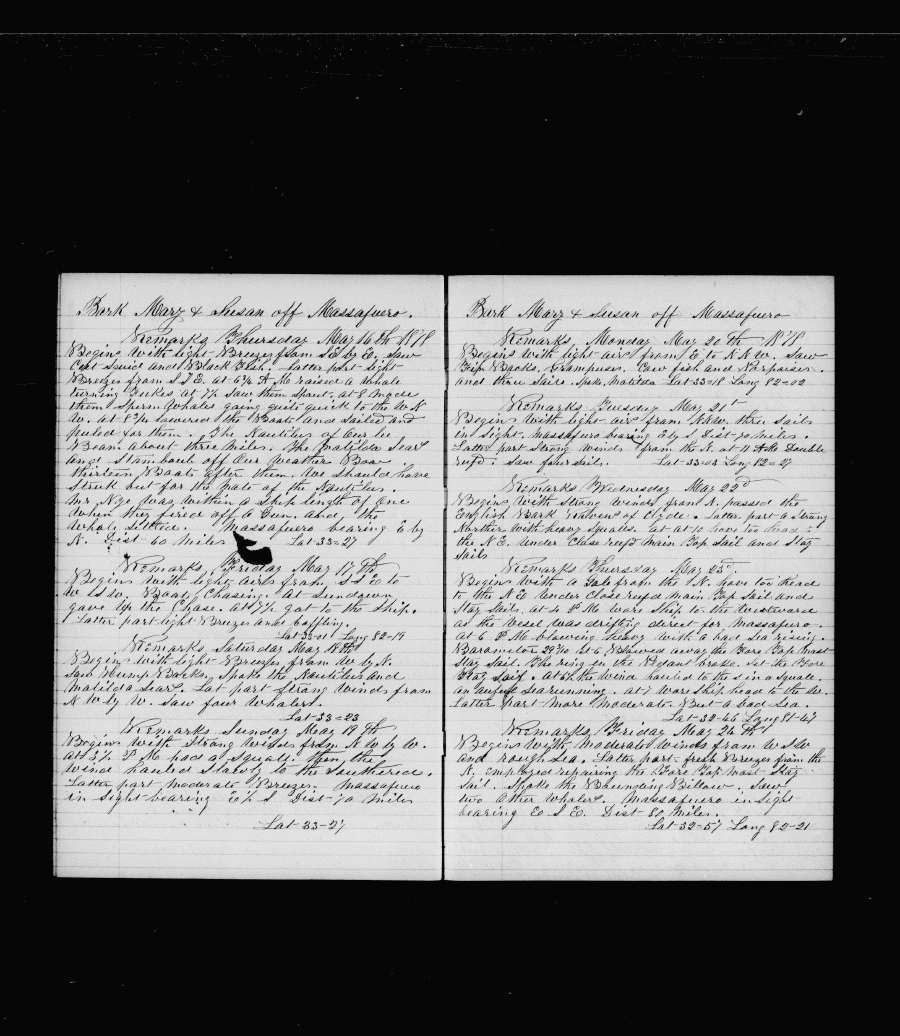 Bark Mary & Susan off Massafuero.
Remarks Thursday May 16th 1878
Begins with light Breezes from SE by E. Saw
Squid and Black Fish. Latter part light
Breezes from S S E. at 6½ A M raised a whale
turning Flukes at 7½ Saw them Spout. at 8 Made
them Sperm Whales going quite quick to the W N
W. at 8½ Lowered the Boats and Sailed and
pulled for them. The Nautilus of our lee
Beam about three miles. The Matilda Sears
and Stamboul off our weather Bow
thirteen Boats after them. We should have
Struck but for the Mate of the Nautilus.
Mr Nye was within a Ship length of one
when they fired off a Gun. and the
Whale Settled. Massafuero bearing E by
N. Dist 60 Miles Lat 33=27
Remarks, Friday May 17th
Begins with light airs from S S E to
W S W. Boats Chasing. At Sundown
gave up the Chase. At 7½ got to the Ship.
Latter part light Breezes and baffling.
Lat 33-01 Long 82-19
Remarks Saturday May 18th
Begins with light Breezes from W by N.
Saw Hump Backs, Spoke the Nautilus and
Matilda Sears. Lat part Strong winds from
N W by W. Saw four Whalers.
Lat 33=23
Remarks Sunday May 19th
Begins with Strong Winds from N W by W.
At 3½ P M had a Squall. then the
wind hauled Slowly to the Southered.
Latter part moderate Breezes. Massafuero
in Sight bearing E S Dist 70 Miles
Lat 33-27
Bark Mary & Susan off Massafuero
Remarks, Monday May 20th 1878
Begins with light airs from E to N N W. Saw
Backs, Grampuses. Cow fish and
and three Sails. Spoke Matilda Lat 33=18 Long 82=02
Remarks Tuesday May 21st
Begins with light airs from NNW. three Sails
in Sight. Massafuero bearing E by Dist 70 Miles.
Latter part Strong Winds from the N. at 11 Double
reefd. Saw four Sails. Lat 33=03 Long 82=27
Remarks Wednesday May 22d
Begins with Strong Winds from N. passed the
English Bark of Clyde. Latter part a Strong
Norther with heavy Squalls. at 10 hove too head to
the N E. under Close reefd Main Top Sail and Stay
Sails
Remarks Thursday May 23d.
Begins with a Gale from the N. hove too head
to the N E under Close reefd main Top Sail and
Stay Sails. at 4 P M wore Ship to the Westward
as the Vesel was drifting direct for Massafuero.
at 6 P M blowing heavy with a bad Sea rising.
Baramoter 29/70 at 6 Blowed away the Fore Top Mast
Stay Sail. The ring in the broke. Set the Fore
Stay Sail. At 6½ the wind hauled to the S in a Squall.
an awfull Sea running. at 7 wore Ship head to the W.
Latter part more Moderate. But a bad Sea.
Lat 32-46 Long 81-47
Remarks Friday May 24th
Begins with Moderate winds from W S W
and rough Sea. Latter part fresh Breezes from the
N. employed repairing the Fore Top Mast Stay
Sail. Spoke the Bounding Billow. Saw
two other Whalers. Massafuero in Sight
bearing E S E. Dist 80 Miles.
Lat 32=57 Long 82-21